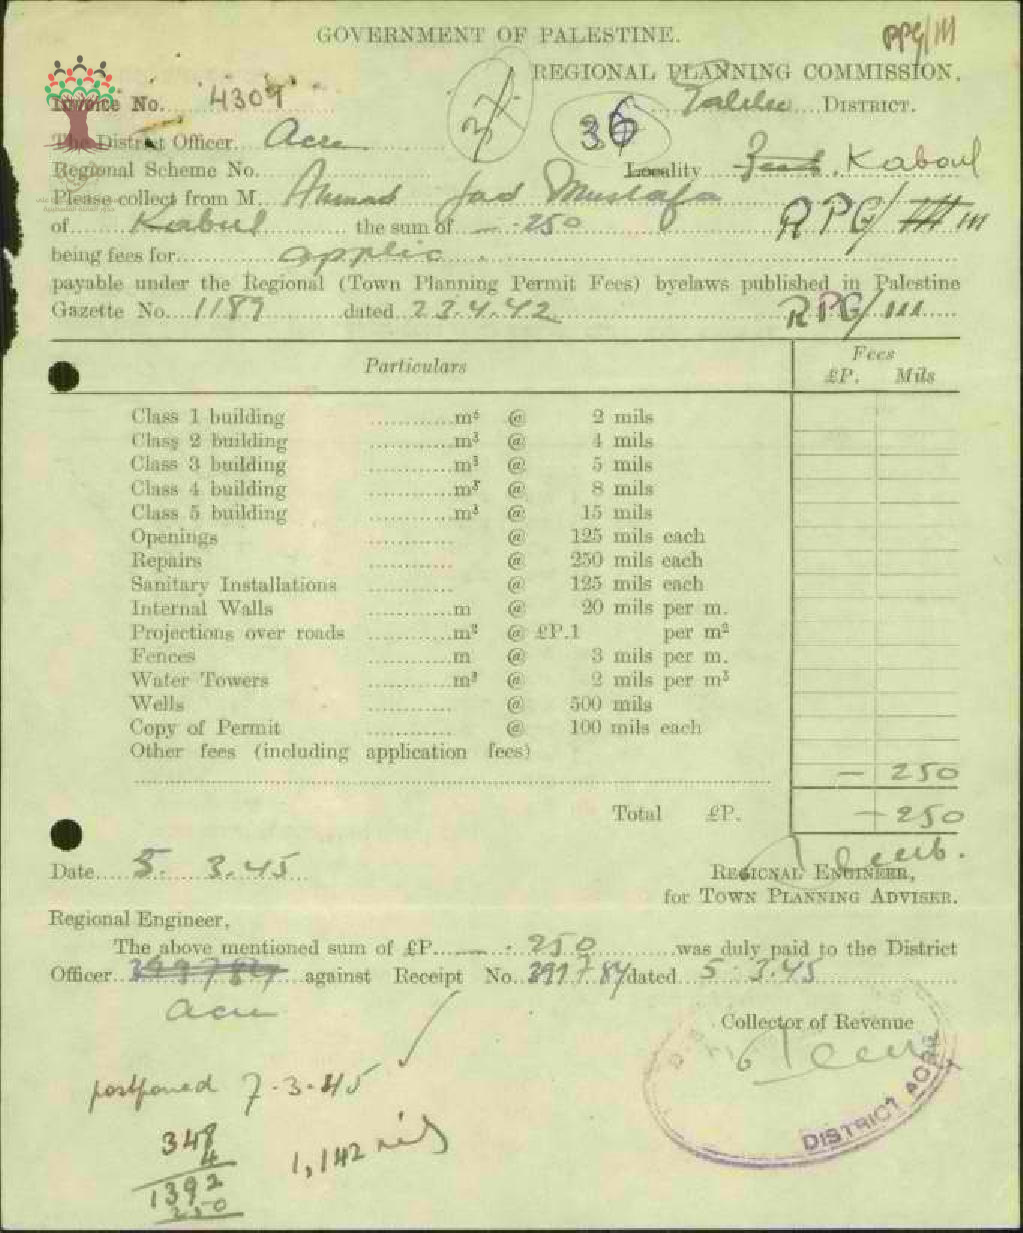 GOVERNMENT OF PALESTINE.
RPG/III
REGIONAL PLANNING COMMISSION.
Invoice No. 4309 Galilee DISTRICT.
36
The District Officer. Acre
Regional Scheme No. Locality Kaboul
Please collect from M. Ahmad Mustafa
of Kabul the sum of — . 250
RPG/III
being fees for applic
payable under the Regional (Town Planning Permit Fees) byelaws published in Palestine
Gazette No. 1189 dated 23.4.42
RPG/III
Particulars Fees
£P. Mils
Class 1 building m³ @ 2 mils
Class 2 building m³ @ 4 mils
Class 3 building m³ @ 5 mils
Class 4 building m³ @ 8 mils
Class 5 building m³ @ 15 mils
Openings @ 125 mils each
Repairs @ 250 mils each
Sanitary Installations @ 125 mils each
Internal Walls m @ 20 mils per m.
Projections over roads m² @ £P.1 per m²
Fences m @ 3 mils per m.
Water Towers m³ @ 2 mils per m³
Wells @ 500 mils
Copy of Permit @ 100 mils each
Other fees (including application fees)
— 250
Total £P. — 250
Date 5. 3.45
REGIONAL ENGINEER,
for TOWN PLANNING ADVISER.
Regional Engineer,
The above mentioned sum of £P. — . 250 was duly paid to the District
Officer 399784 against Receipt No. 399784 dated 5.3.45
Acre
Collector of Revenue
DISTRICT ACRE
postponed 7.3.45
348
4
1392
250
1,142 mils